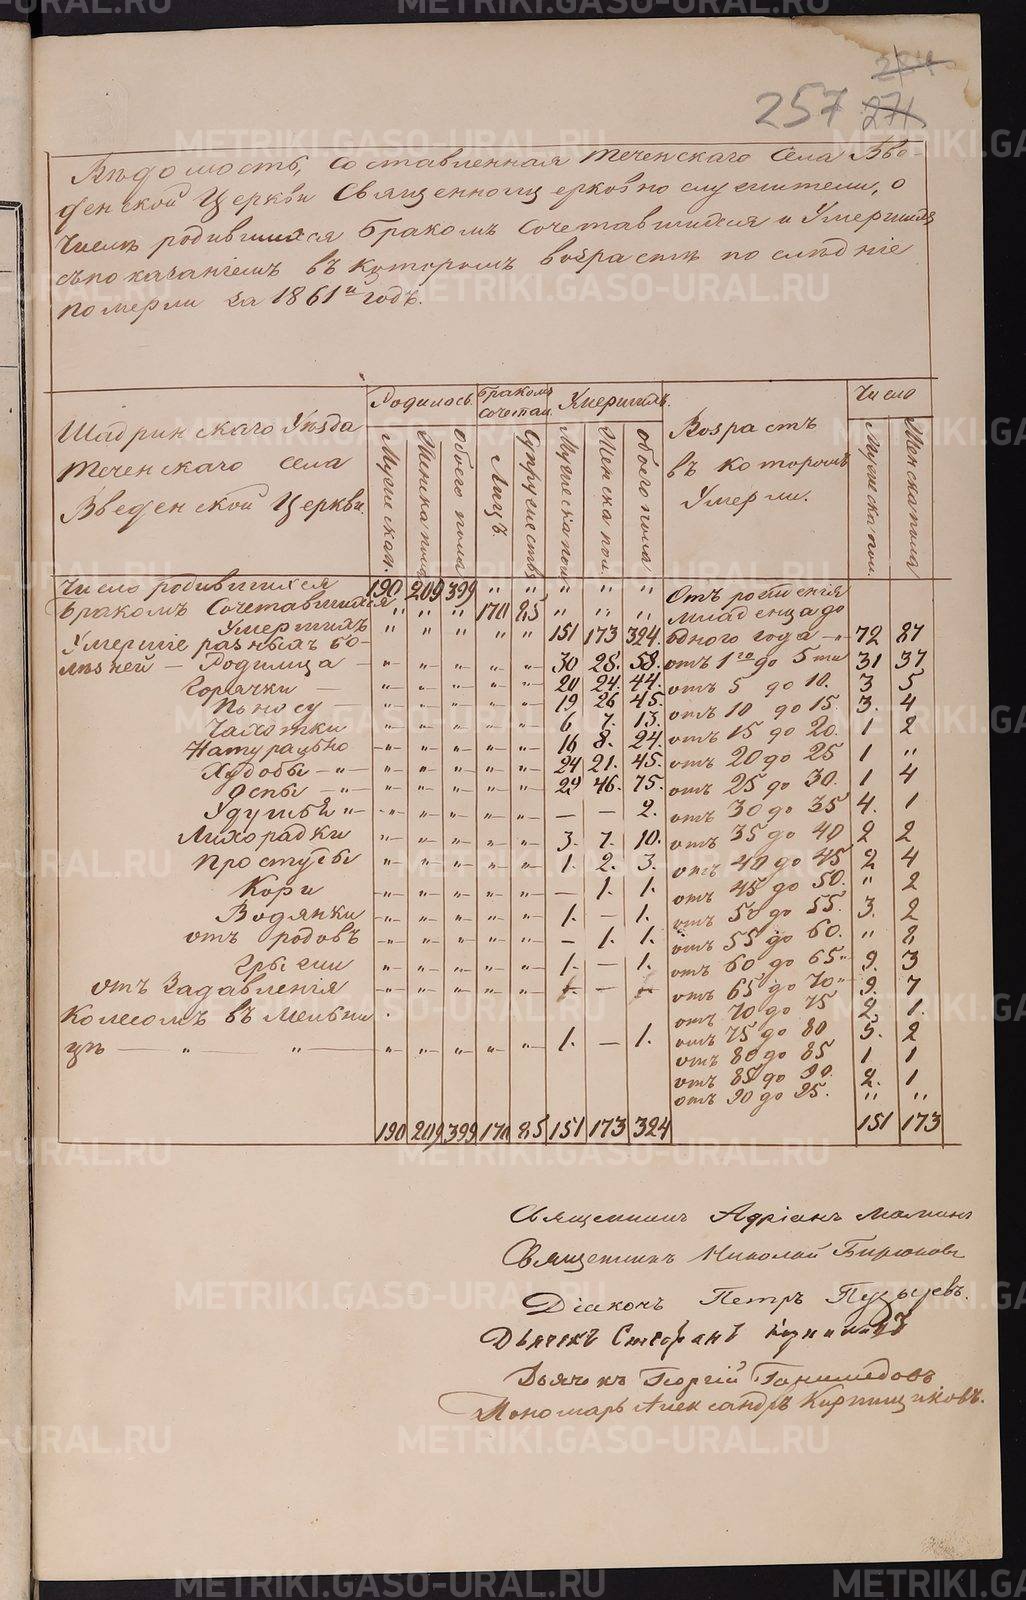 257 271
Вѣдомость, составленная Теченскаго села Вве
денской Церкви Священноцерковнослужители, о
Числѣ родившихся Бракомъ Сочетавшихся и Умершихъ
съ показаніемъ въ которомъ возрастѣ послѣдніе
померли за 1861й годъ.
Шадринскаго Уѣзда
Теченскаго села
Введенской Церкви.
Родилось.
Мужескаго.
Женска пола
обоего пола
Бракомъ сочетал.
Лицъ.
Супружествъ
Умершихъ.
Мужеска пол
Женска пол.
обоего пола.
Возрастъ
въ которомъ
Умерли.
Число
Мужеска пол.
Женска пола
Число родившихся 190 209 399 „ „ „ „ „ Отъ рожденія
Бракомъ Сочетавшихся „ „ „ 170 85 „ „ „ младенца до
Умершихъ „ „ „ „ „ 151 173 324. одного года „ 72 87
Умершіе разныхъ бо-
лѣзней — Родимца — „ „ „ „ „ 30 28. 58. отъ 1го до 5ти 31 37
Горячки — „ „ „ „ „ 20 24. 44. отъ 5 до 10. 3 5
Поносу — „ „ „ „ „ 19 26 45. отъ 10 до 15. 3. 4
Чахотки „ „ „ „ „ 6 7. 13. отъ 15 до 20. 1 2
Натурально „ „ „ „ „ 16 8. 24. отъ 20 до 25 1 „
Худобы — „ — „ „ „ „ „ 24 21. 45. отъ 25 до 30. 1 4
Оспы — „ — „ „ „ „ „ 29 46. 75. отъ 30 до 35 4. 1
Удушьй „ — „ „ „ „ „ — — 2. отъ 35 до 40 2 2
Лихорадки „ „ „ „ „ 3. 7. 10. отъ 40 до 45 2 4
Простуды „ „ „ „ „ 1. 2. 3. отъ 45 до 50. „ 2
Кори „ „ „ „ „ — 1. 1. отъ 50 до 55. 3. 2
Водянки „ „ „ „ „ 1. — 1. отъ 55 до 60. „ 2
отъ родовъ „ „ „ „ „ — 1. 1. отъ 60 до 65 „ 9. 3
грыжи „ „ „ „ „ 1. — 1. отъ 65 до 70 „ 9. 7
отъ Задавленія „ „ „ „ „ 1. — 1. отъ 70 до 75 2. 1.
Колесомъ въ Мельни
цѣ — „ — „ „ „ „ „ „ 1. — 1. отъ 75 до 80 5. 2
отъ 80 до 85 1. 1
отъ 85 до 90. 2. 1
отъ 90 до 95. „ „
190 209 399 170 85 151 173 324 151 173
Священникъ Адріанъ
Священникъ Николай Бирюковъ
Діаконъ Петръ Пузыревъ.
Дьячекъ Стефанъ
Дьячекъ Георгій Ганимедовъ
Пономарь Александръ Кирпищиковъ.
METRIKI.GASO-URAL.RU